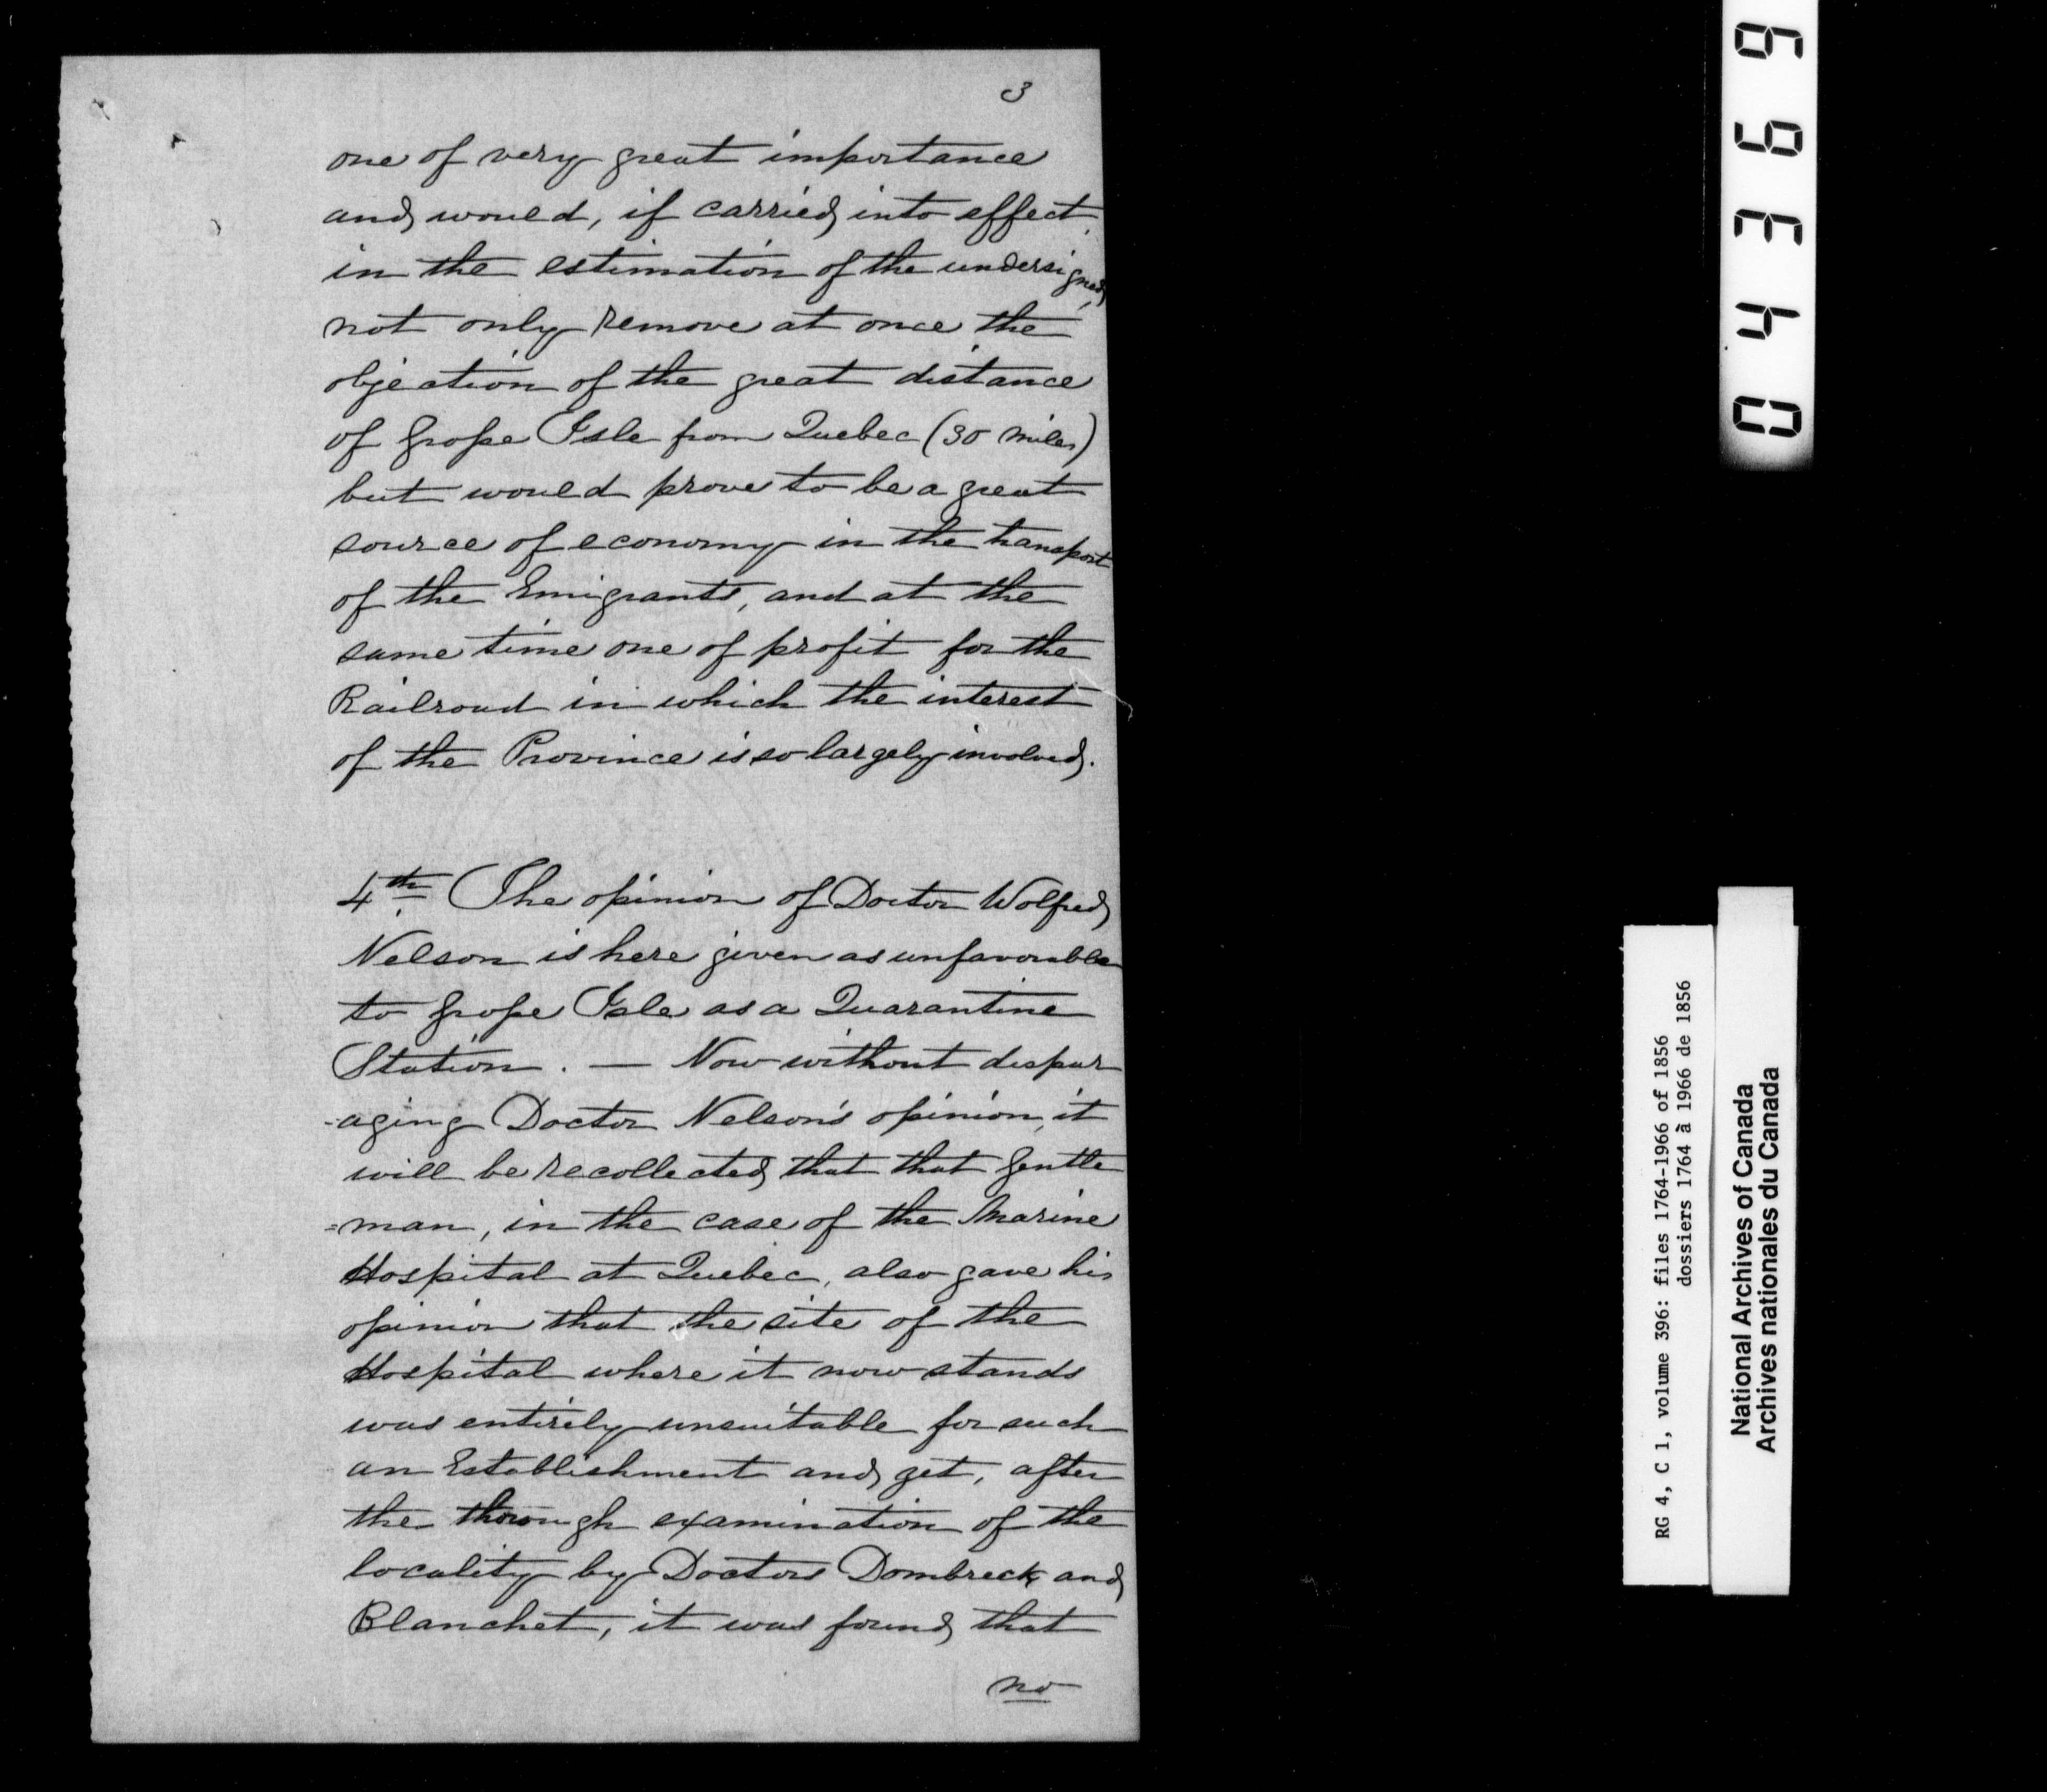 3
one of very great importance
and would, if carried into effect,
in the estimation of the undersigned,
not only remove at once the
objection of the great distance
of Grosse Isle from Quebec (30 miles)
but would prove to be a great
source of economy in the transport
of the Emigrants, and at the
same time one of profit for the
Railroad in which the interest
of the Province is so largely involved.
4th The opinion of Doctor Wolfred
Nelson is here given as unfavorable
to Grosse Isle as a Quarantine
Station. — Now without dispar
-aging Doctor Nelson's opinion, it
will be recollected that that Gentle
=man, in the case of the Marine
Hospital at Quebec, also gave his
opinion that the site of the
Hospital where it now stands
was entirely unsuitable for such
an Establishment and yet, after
the thorough examination of the
locality by Doctors Dombreck and
Blanchet, it was found that
no
04369
RG 4, C 1, volume 396: files 1764-1966 of 1856
dossiers 1764 à 1966 de 1856
National Archives of Canada
Archives nationales du Canada